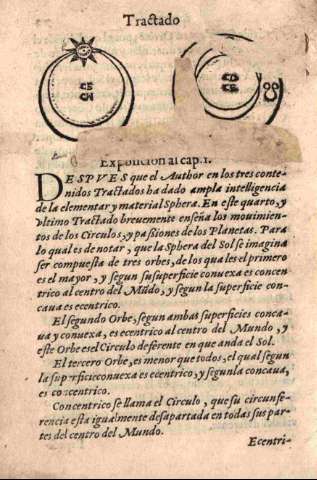 Tractado
Exposicion al cap. 1.
DESPVES que el Author en los tres conte-
nidos Tractados ha dado ampla intelligencia
de la elementar y material Sphera. En este quarto, y
vltimo Tractado breuemente enseña los mouimien-
tos de los Circulos, y passiones de los Planetas. Para
lo qual es de notar, que la Sphera del Sol se imagina
ser compuesta de tres orbes, de los quales el primero
es el mayor, y segun su superficie conuexa es concen-
trico al centro del Mũdo, y segun la superficie con-
caua es ecentrico.
El segundo Orbe, segun ambas superficies conca-
ua y conuexa, es ecentrico al centro del Mundo, y
este Orbe es el Circulo deferente en que anda el Sol.
El tercero Orbe, es menor que todos, el qual segun
la superficie conuexa es ecentrico, y segun la concaua,
es concentrico.
Concentrico se llama el Circulo, que su circunfe-
rencia esta igualmente desapartada en todas sus par-
tes del centro del Mundo.
Ecentri-